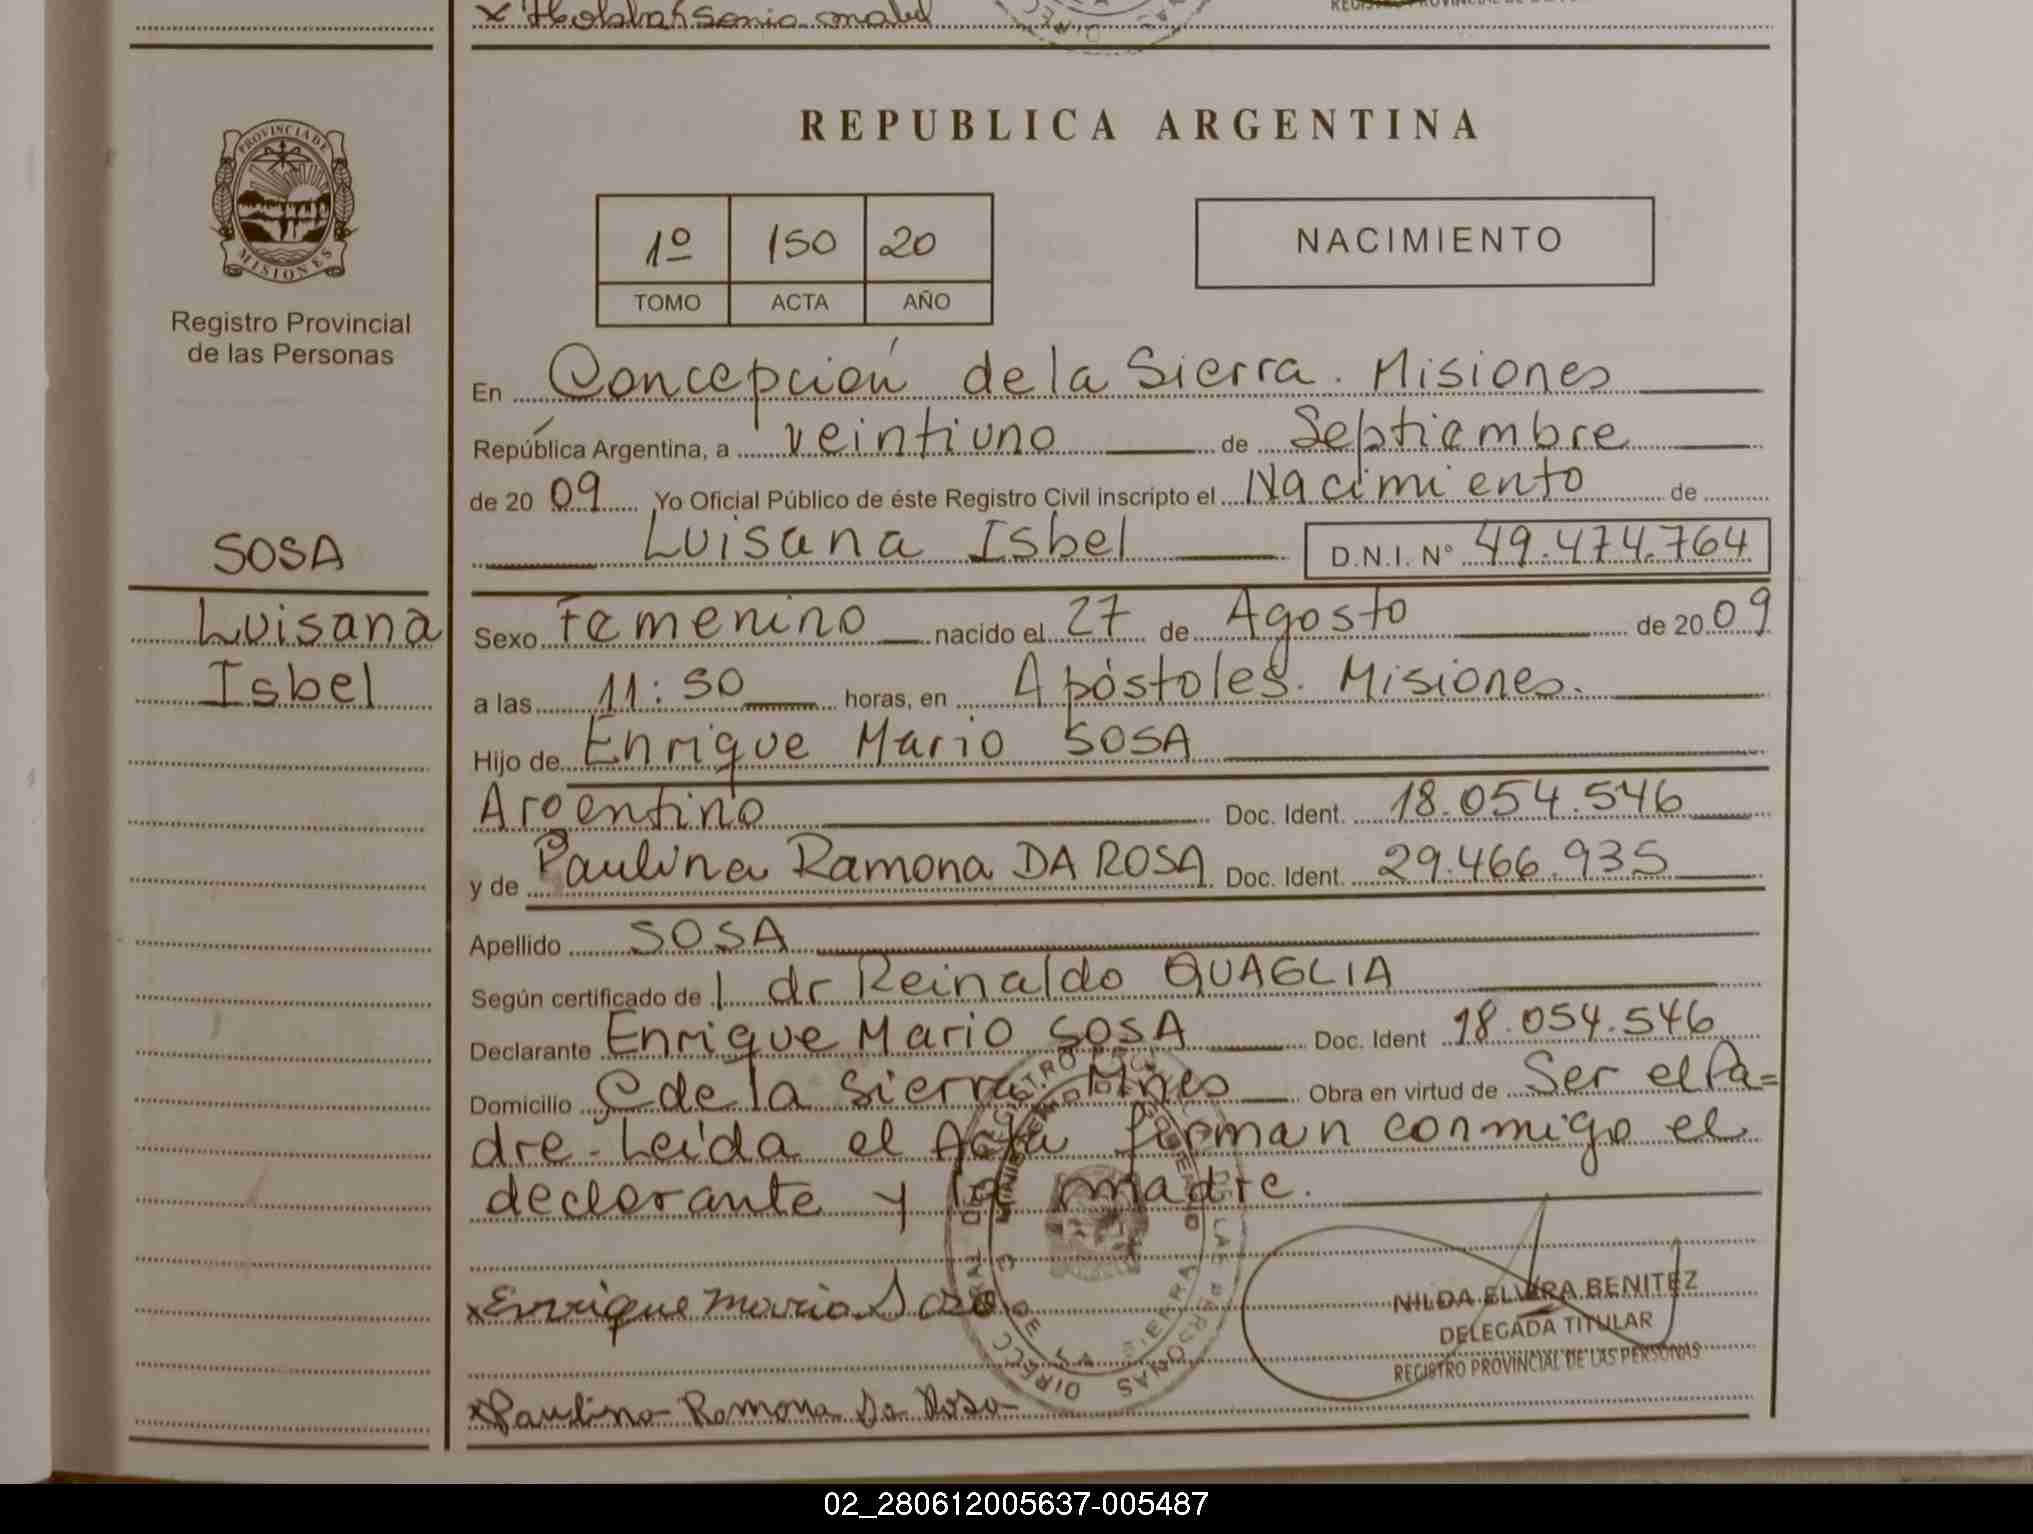 x Holobah Sonia mabel
PROVINCIA DE
MISIONES
Registro Provincial
de las Personas
SOSA
Luisana
Isbel
REPUBLICA ARGENTINA
1º 150 20
TOMO ACTA AÑO
NACIMIENTO
En Concepción de la Sierra. Misiones
República Argentina, a veintiuno de Septiembre
de 20 09 Yo Oficial Público de éste Registro Civil inscripto el Nacimiento de
Luisana Isbel D.N.I. Nº 49.474.764
Sexo Femenino nacido el 27 de Agosto de 20 09
a las 11:50 horas, en Apóstoles. Misiones.
Hijo de Enrique Mario SOSA
Argentino Doc. Ident. 18.054.546
y de Paulina Ramona DA ROSA Doc. Ident. 29.466.935
Apellido SOSA
Según certificado de l dr Reinaldo QUAGLIA
Declarante Enrique Mario SOSA Doc. Ident 18.054.546
Domicilio C de la Sierra Mnes Obra en virtud de Ser el Pa=
dre. Leída el Acta firman conmigo el
declarante y la madre.
x Enrique Mario Sosa
NILDA ELVIRA BENITEZ
DELEGADA TITULAR
REGISTRO PROVINCIAL DE LAS PERSONAS
x Paulina Ramona Da Rosa
02_280612005637-005487